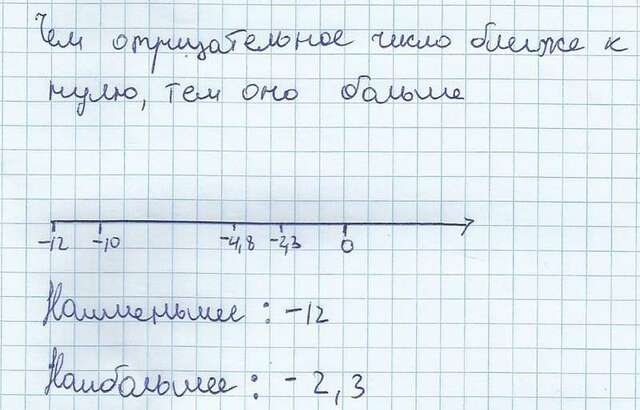 Чем отрицательное число ближе к
нулю, тем оно больше
-12 -10 -4,8 -2,3 0
Наименьшее : -12
Наибольшее : - 2,3